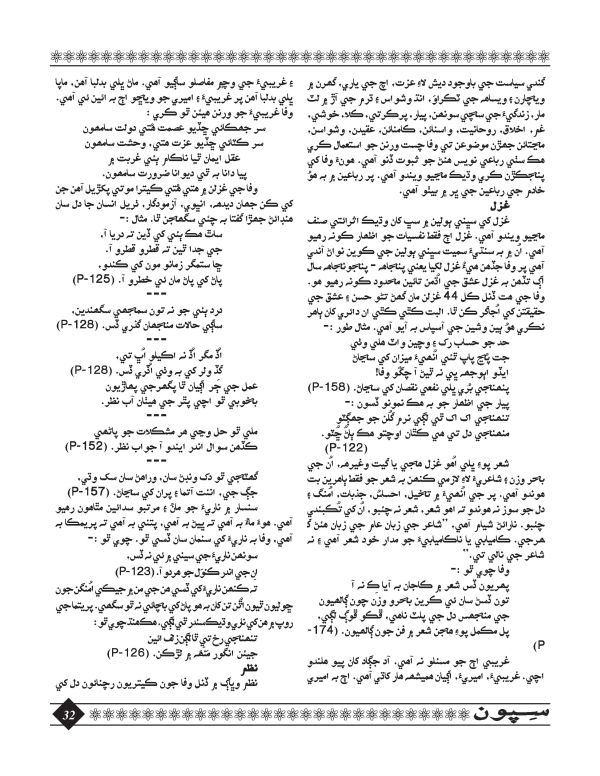 گندي سياست جي باوجود ديش لاءِ عزت، اڄ جي ياري، گهرن ۾
ويڇارن ۽ ويساهہ جي ٽڪراؤ، انڌ وشواس ۽ ڌرم جي آڙ ۾ لٽ
مار، زندگيءَ جي ساڃي سونهن، پيار، پرڪرتي، ڪلا، خوشي،
غم، اخلاق، روحانيت، واسنائن، ڪامنائن، عقيدن، وشواسن،
ماڃتائن جهڙن موضوعن تي وفا چست ورنن جو استعمال ڪري
هڪ سٺي رباعي نويس هئڻ جو ثبوت ڏنو آهي. هونءَ وفا کي
پنجڪڙن ڪري وڌيڪ ماڃيو ويندو آهي. پر رباعين ۾ بہ هوُ
خادم جي رباعين جي ڀر ۾ بيٺو آهي.
غزل
غزل کي سڀني ٻولين ۾ سڀ کان وڌيڪ اثرائتي صنف
ماڃيو ويندو آهي. غزل اڄ فقط نفسيات جو اظهار ڪونہ رهيو
آهي. اُن ۾ بہ سنڌيءَ سميت سڀني ٻولين جي ڪوين نواڻ آندي
آهي پر وفا جڏهن هيءُ غزل لکيا يعني پنجاهہ - پنجونجاهہ سال
اڳ تڏهن بہ غزل عشق جي اُڌمن تائين محدود ڪونہ رهيو هو.
وفا جي هٿ ڏنل ڪل 44 غزلن مان گهڻ تڻو حسن ۽ عشق جي
حقيقتن کي اُجاگر ڪن ٿا. البت ڪٿي ڪٿي ان دائري کان ٻاهر
نڪري هوُ ٻين وشين جي آسپاس بہ آيو آهي. مثال طور :-
حد جو حساب رک ۽ وڃين واٽ ملي وئي
جت پڃ پاپ ٿئي اُنهيءَ ميزان کي سڃاڻ
ايڏو اٻوجهہ ٻي نہ ٿيڻ آ چڱو وفا!
پنهنجي بُري ڀلي نفعي نقصان کي سڃاڻ. (P-158)
پيار جي اظهار جو بہ هڪ نمونو ڏسون :-
تنهنجي اک اک ٿي لڳي نرم گُلن جو جهڳٽو
منهنجي دل تي هي ڪٿان اوچتو هڪ ٻاڻ ڇُٽو.
(P-122)
شعر پوءِ ڀلي اُهو غزل هجي يا گيت وغيرهہ، اُن جي
باحر وزن ۽ شاعريءَ لاءِ لازمي ڪنهن بہ شعر جو فقط ٻاهرين بت
هوندو آهي. پر جي اُنهيءَ ۾ تاخيل، احساسُ، جذبات، اُمنگ ۽
دل جو سوز نہ هوندو تہ اهو شعر، شعر نہ چئبو، اُن کي تُڪبندي
چئبو. نارائڻ شيام آهي، "شاعر جي زبان عام جي زبان هئڻ گُ
هرجي. ڪاميابي يا ناڪاميابيءَ جو مدار خود شعر آهي ۽ نہ
شاعر جي نالي تي."
وفا چوي ٿو :-
پهريون ڏس شعر ۾ ڪاجان بہ آيا ڪ نہ آ
تون ڏسڻ سان ئي ڪرين باحرو وزن چون ڳالهيون
جي منجهس دل جي پلٽ ناهي، ڦڪو ڦوڳ لڳي،
پل مڪمل پوءِ هجن شعر ۾ فن جون ڳالهيون. (174-
P)
غريبي اڄ جو مسئلو نہ آهي. آڌ جڳاد کان پيو هلندو
اچي. غريبيءَ، اميريءَ، اڳيان هميشہ هار کاٽي آهي. اڄ بہ اميري
۽ غريبيءَ جي وچ ۾ مفاصلو ساڳيو آهي. ماڻ ڀلي بدليا آهن، ماپا
ڀلي بدليا آهن پر غريبيءَ ۽ اميري جو ويڇو اڄ بہ ائين ئي آهي.
وفا غريبيءَ جو ورنن هيئن ٿو ڪري :
سر جهڪائي ڇڏيو عصمت هُئي دولت سامهون
سر ڪٽائي ڇڏيو عزت هئي، وحشت سامهون
عقل ايمان ٿيا ناڪام ٻئي غربت ۾
پيا دانا بہ ٿي ديوانا ضرورت سامهون.
وفا جي غزلن ۾ هٿي هُٿي ڪيترا موتي پکڙيل آهن جن
کي ڪن جهان ديدهہ، انڀوي، آزمودگار، ڏريل انسان جا دل سان
هنڊائڻ جهڙا گفتا بہ چئي سگهجن ٿا. مثال :-
ساٿ هڪ ٻئي کي ڏين تہ دريا آ،
جي جدا ٿئين تہ قطرو قطرو آ.
ڇا ستمگر زمانو مون کي ڪندو،
پاڻ کي پاڻ مان ئي خطرو آ. (P-125)
---
درد ٻئي جو نہ تون سماجهي سگهندين،
ساڳي حالات منجهان گذري ڏس. (P-128)
---
اُڏ مگر اڏ نہ اڪيلو اُڀ تي،
گڏ ولر کي بہ وٺي اُڏري ڏس. (P-128)
عمل جي ڄر اڳيان ٿا پگهرجي پهاڙيون
باخوبي ٿو اچي پٿر جي هيٺان آب نظر.
---
ملي ٿو حل وڃي هر مشڪلات جو پاڻهي
ڪٿهن سوال اندر ايندو آ جواب نظر. (P-152)
---
گهٽجي ٿو ڌڪ ونڊڻ سان، وراهڻ سان سک وڌي،
جڳ جي، اننت آتما ۽ پران کي سڃاڻ. (P-157)
سنسار ۾ ناريءَ جو ماڻ ۽ مرتبو سدائين مٿاهون رهيو
آهي. هوءَ ماءُ بہ آهي تہ ڀيڻ بہ آهي، پتني بہ آهي تہ پريمڪا بہ
آهي. وفا بہ ناريءَ کي سنمان سان ڏسي ٿو. چوي ٿو :-
سونهن ناريءَ جي سيني ۾ ئي نہ ڏس،
اِن جي اندر ڪنوَل جو هردو آ. (P-123)
تہ ڪنهن ناريءَ کي ڏسي هن جي من ۾ جيڪي اُمنگن جون
ڇوليون ٿيون اُٿن تن کان بہ هو پاڻ کي باچائي نہ ٿو سگهي. پريتما جي
روپ ۾ هن کي ناري وڌيڪ سندر ٿي لڳي. هڪ هنڌ چوي ٿو :
تنهنجي رخ تي ٿا لڳن زهف ائين
جيئن انگور مٿهہ ۾ لڙڪن. (P-126)
نظر
نظر وڀاڳ ۾ ڏنل وفا جون ڪيتريون رچنائون دل کي
32
سپون